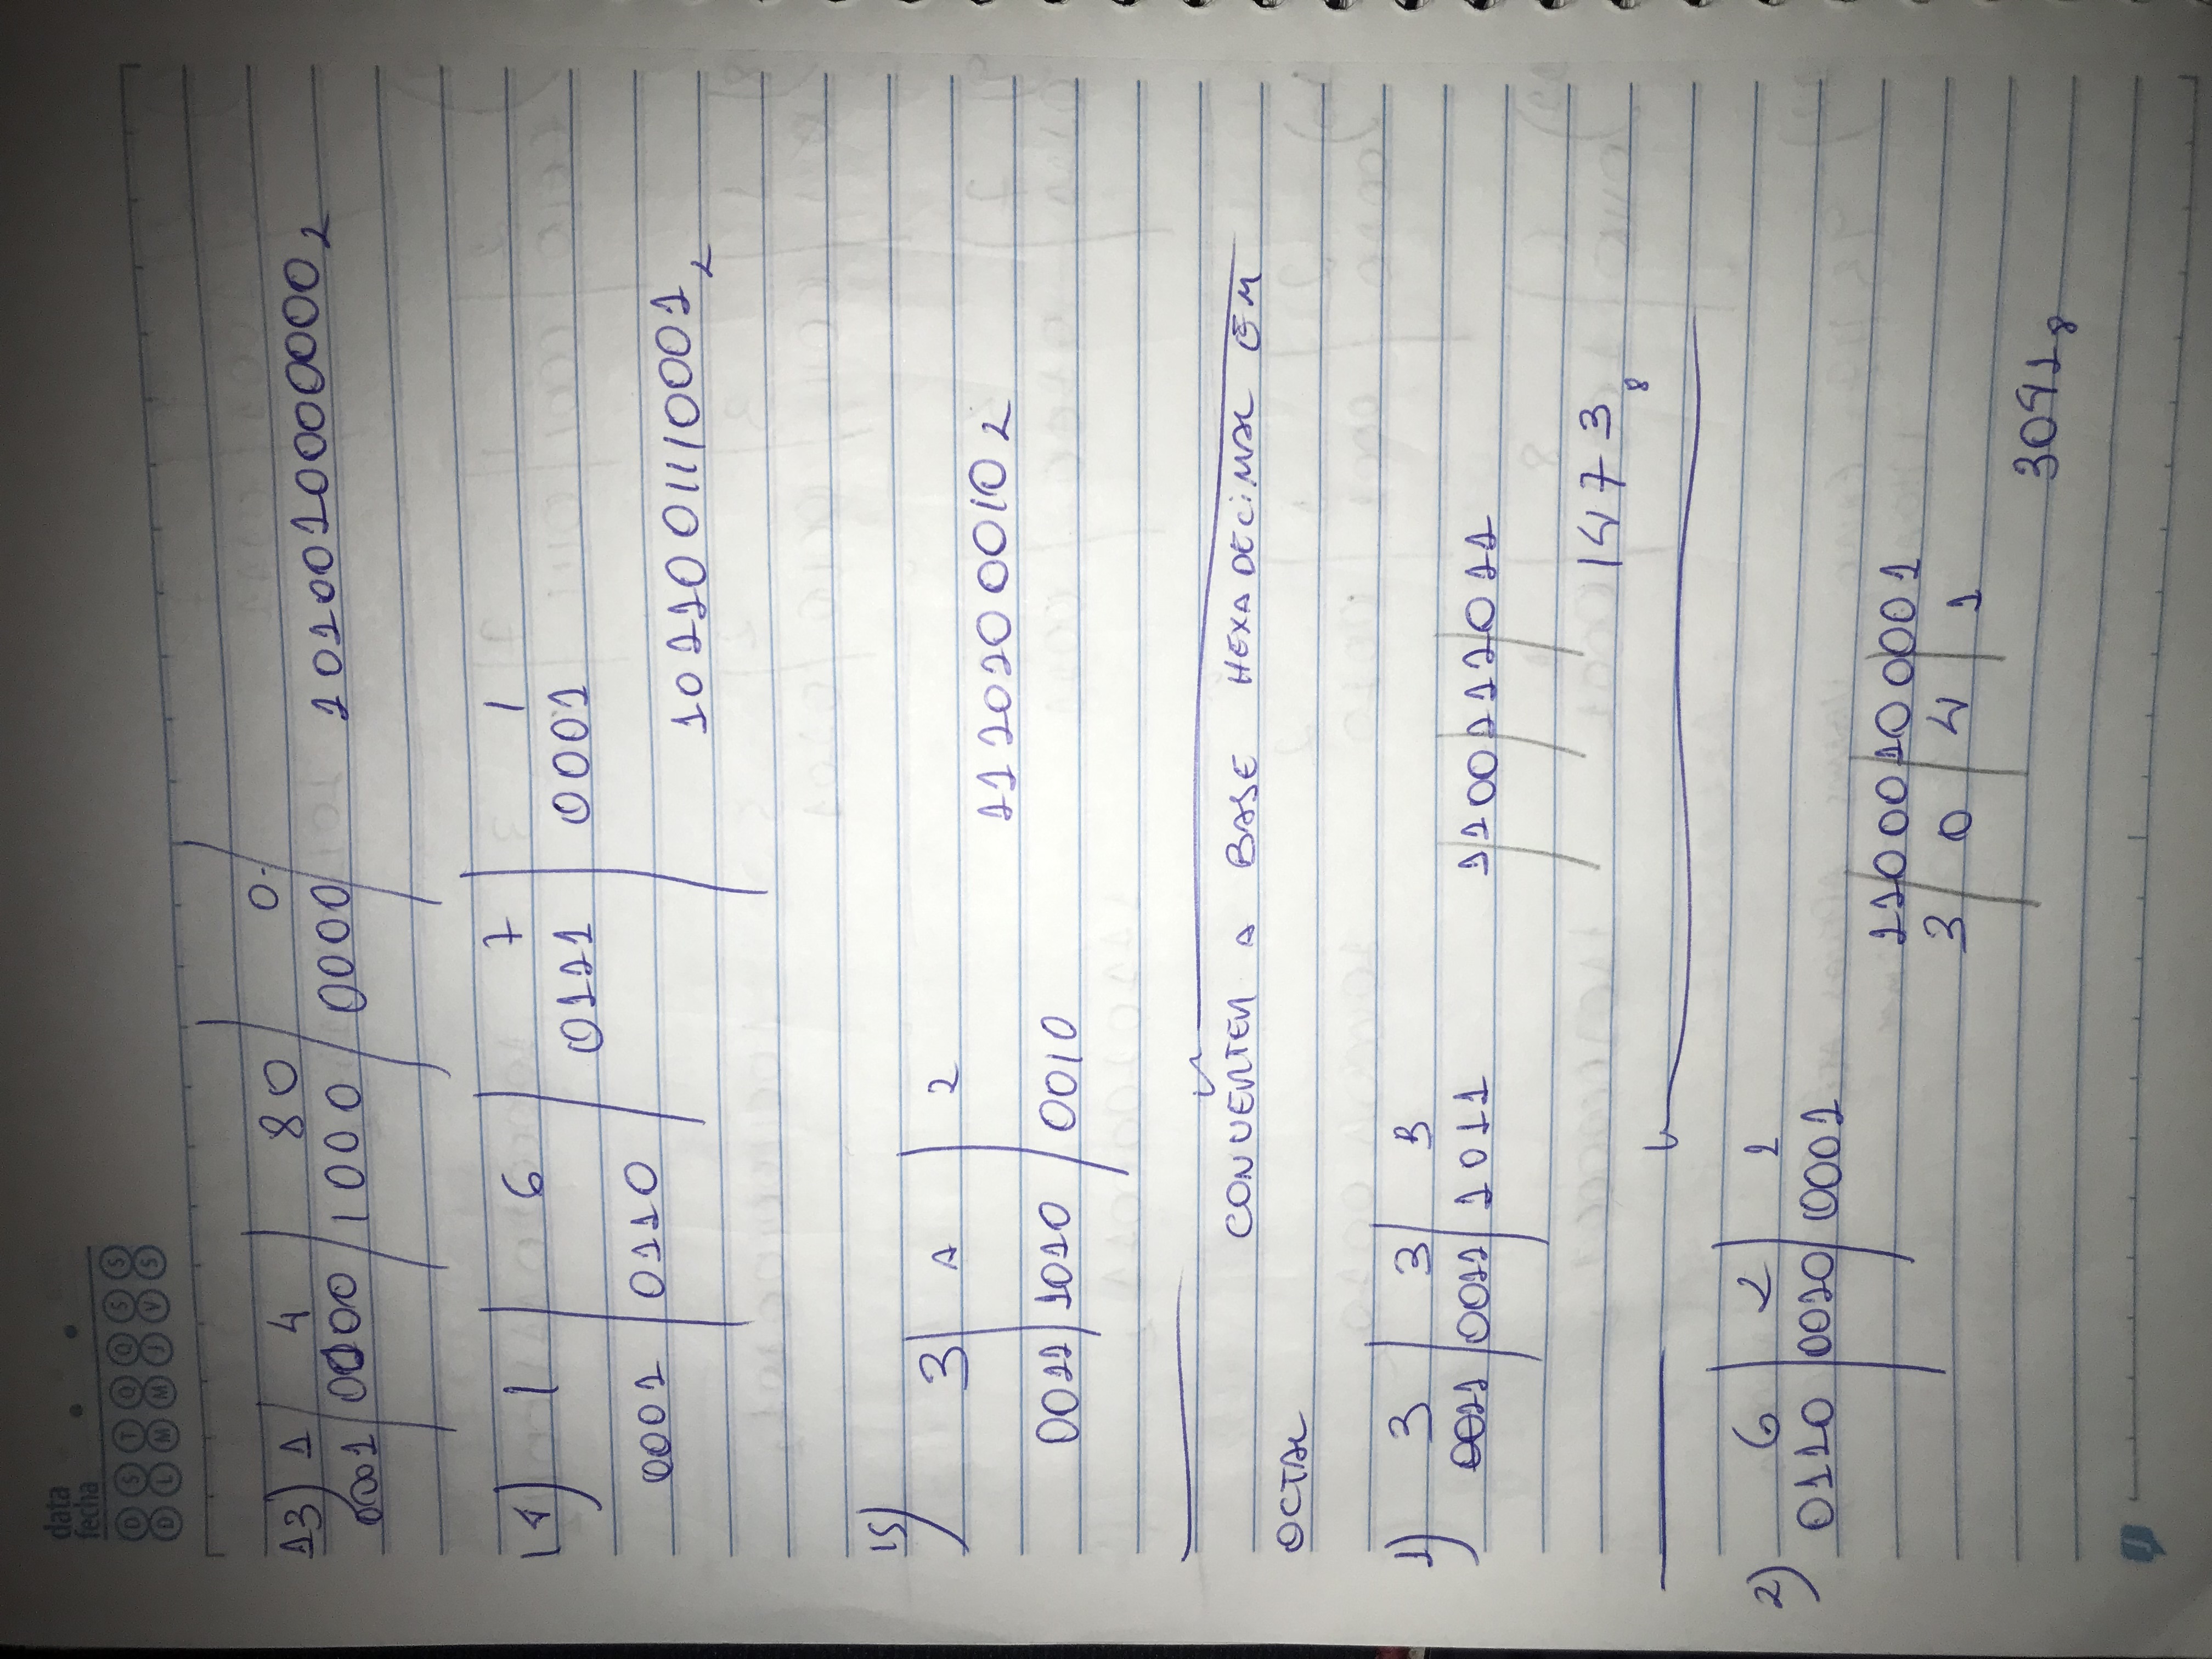 data
fecha
D S T Q Q S S
D L M M J V S
13) 1 4 80 0
0001 0100 1000 0000 1010010000000 2
14) 1 6 7 1
0111 0001
0001 0110
1011001110001 2
15)
3 A 2
11101000102
0011 1010 0010
CONVERTER A BASE HEXADECIMAL EM
OCTAL
1) 3 3 B
0011 0011 1011 110011 1011
1473 8
2) 6 2 1
0110 0010 0001
11000100001
3 0 4 1
3041 8